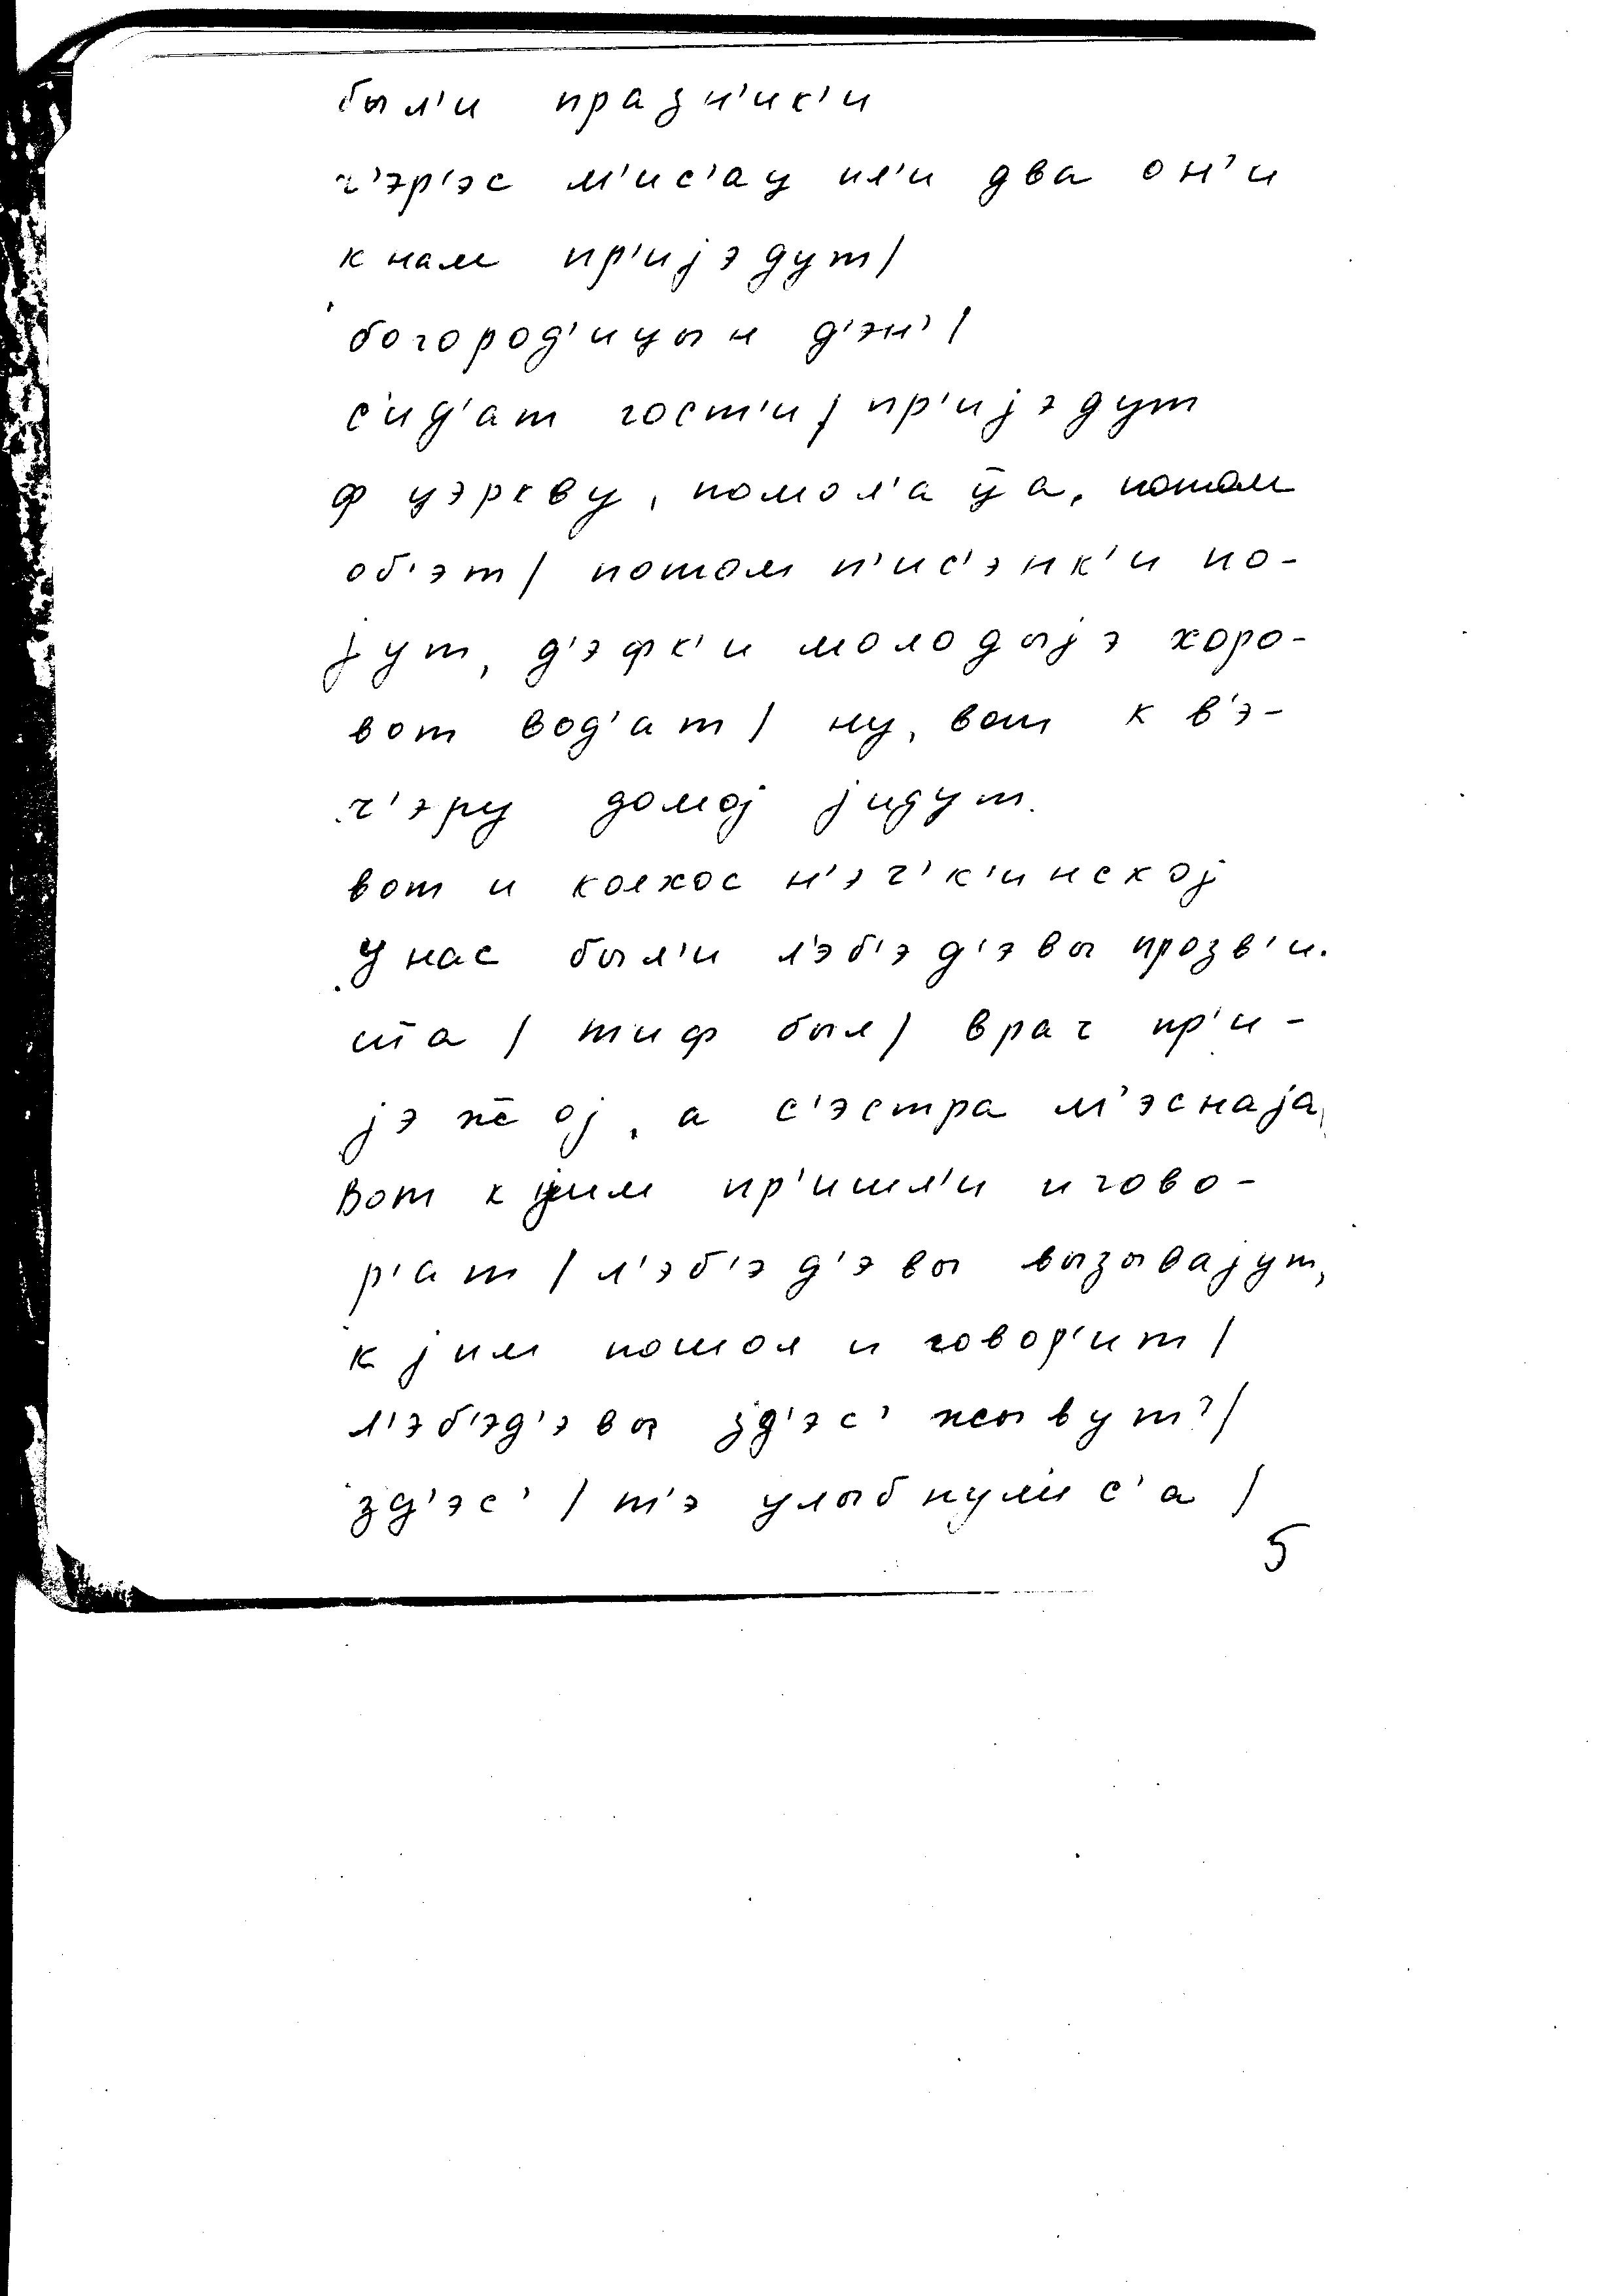 был'и празн'ик'и
ч'эр'эс м'ис'ац ил'и два он'и
к нам пр'ијэдут/
богород'ицын д'эн'/
с'ид'ат гост'и/ пр'ијэдут
ф цэркву, помол'а ц̄а, потом
об'эт/ потом п'ис'энк'и по-
јут, д'эфк'и молодыјэ хоро-
вот вод'ат/ ну, вот к в'э-
ч'эру домој јидут.
вот и колхос н'эч'к'инской
У нас был'и л'эб'эд'эвы прозв'и-
ш̄а/ тиф был/ врач пр'и-
јэж̄ој, а с'эстра м'эснаја,
Вот к јим пр'ишл'и и гово-
р'ат/ л'эб'эд'эвы вызывајут,
к јим пошол и говор'ит/
л'эб'эд'эвы зд'эс' жывут?/
зд'эс'/ т'э улыбнул'ис'а/
5